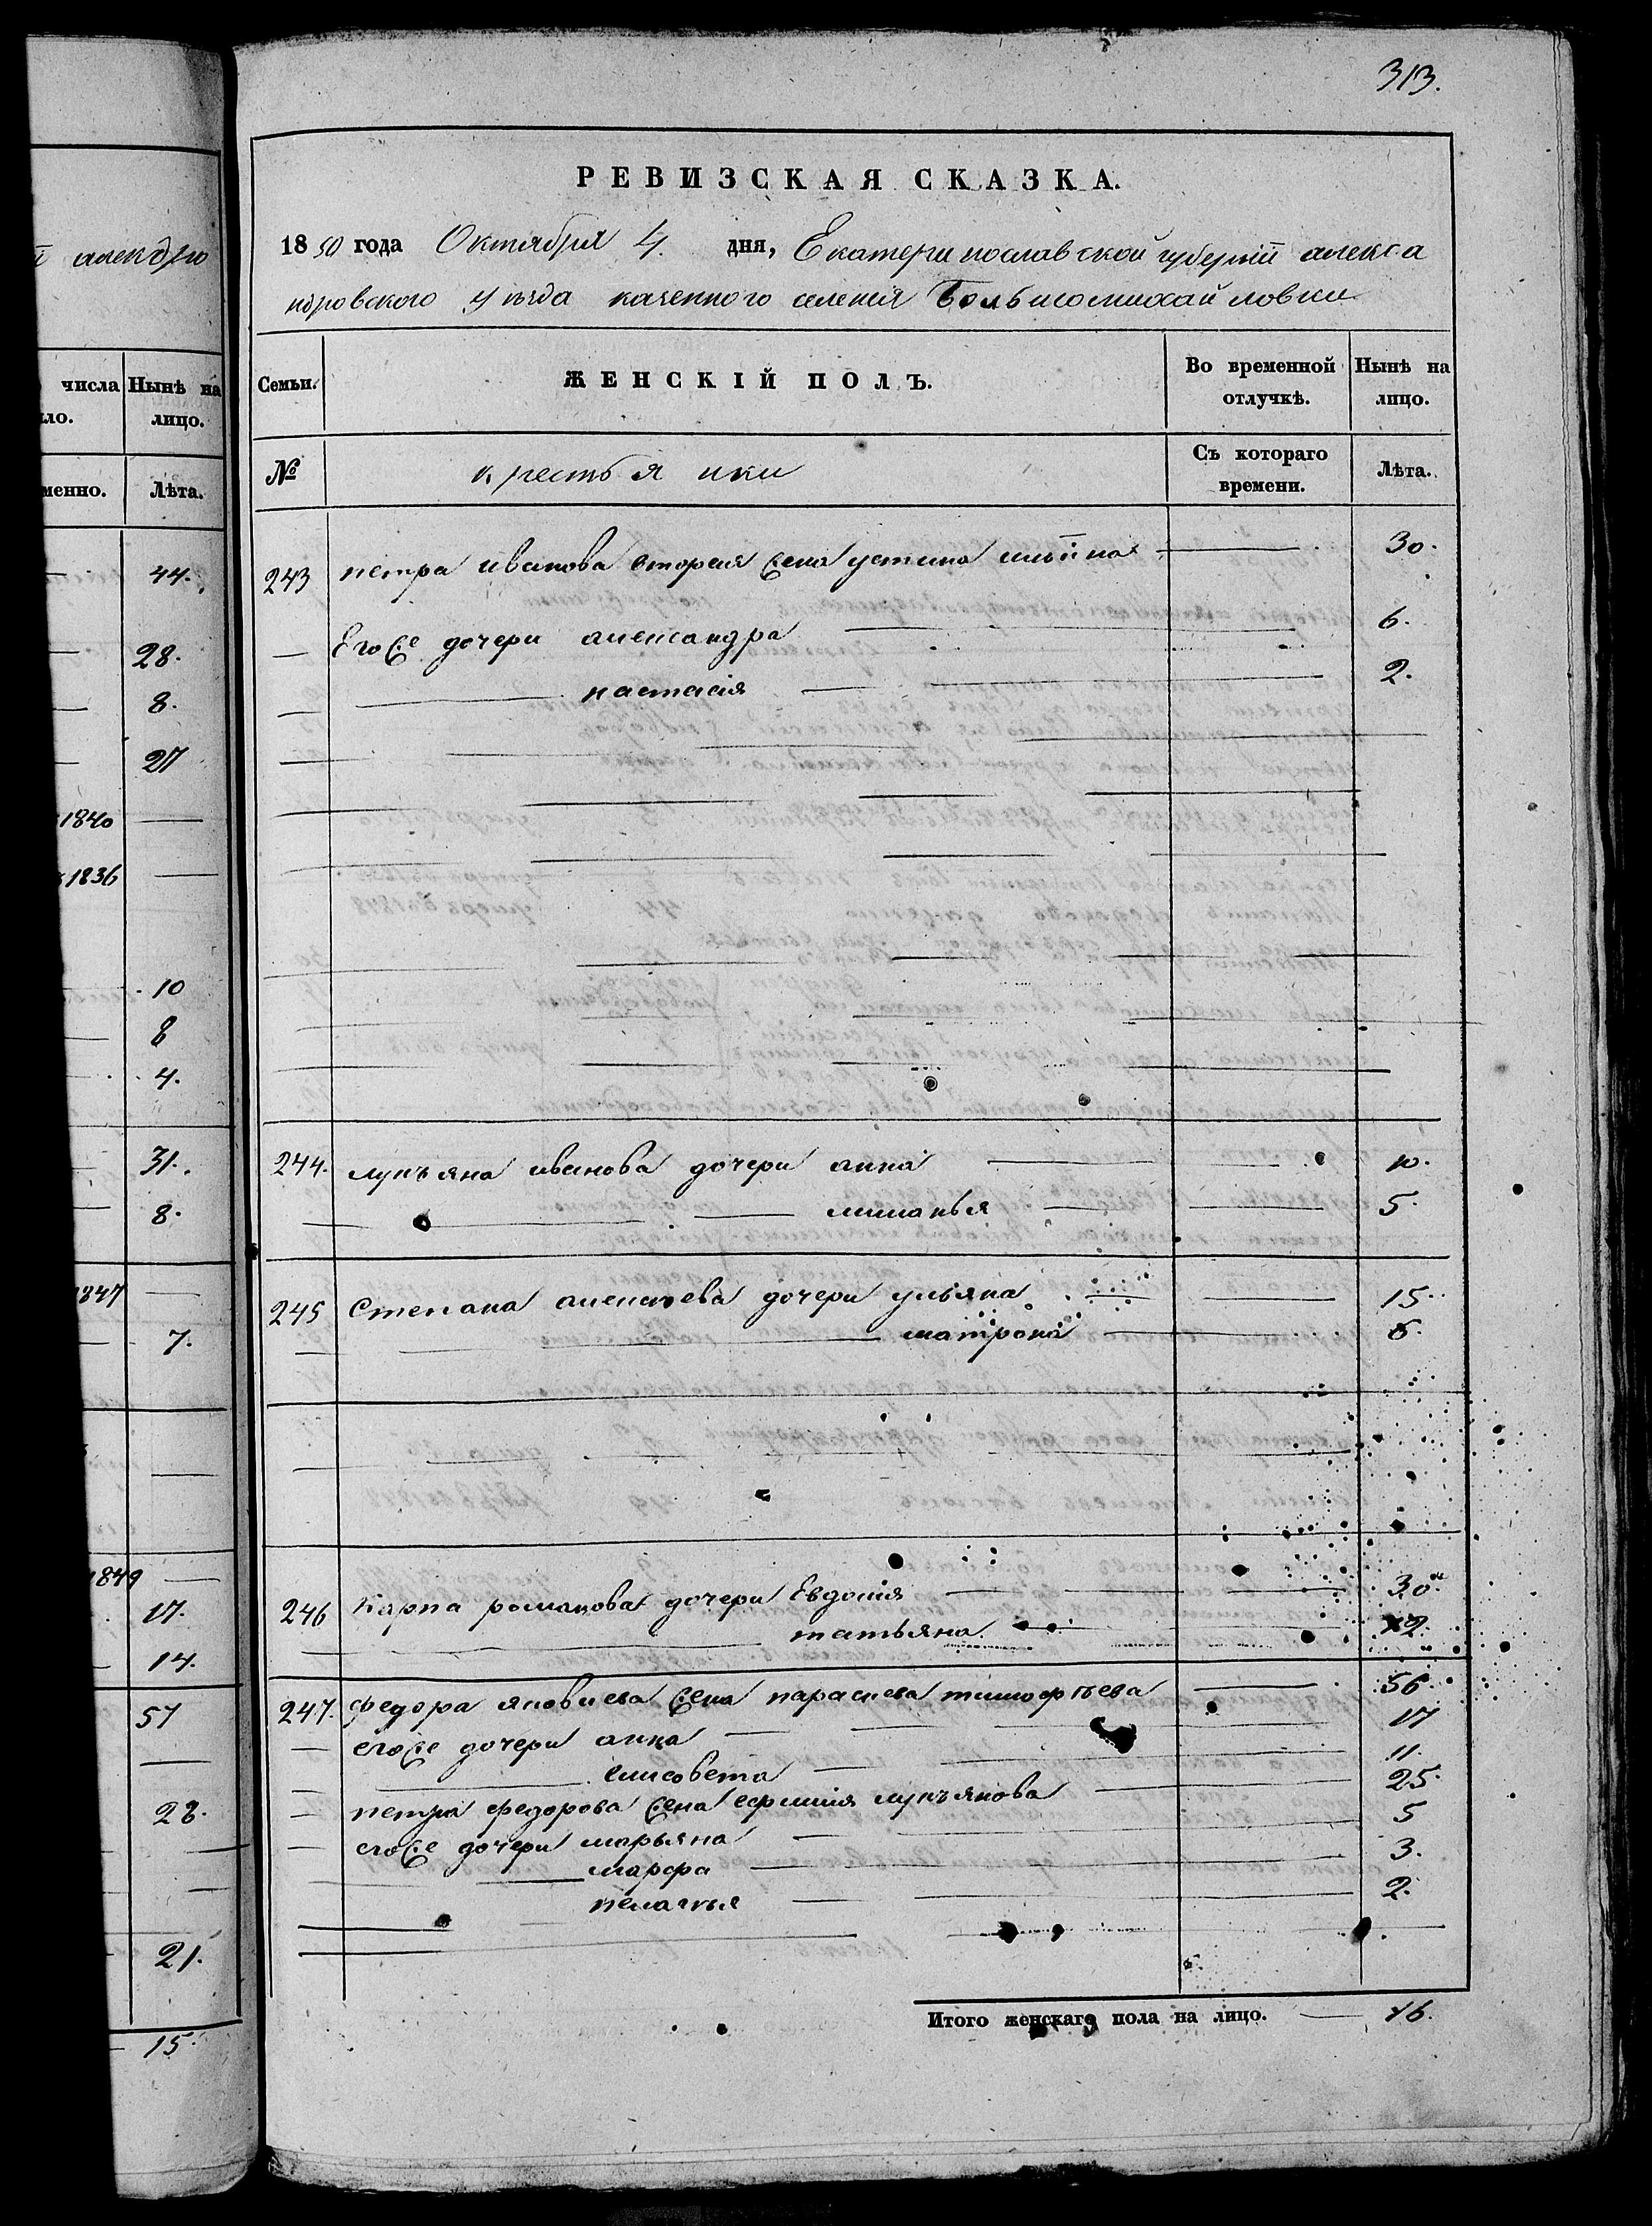 313.
РЕВИЗСКАЯ СКАЗКА.
1850 года Октября 4. дня, Екатеринославской губернiи алекса
ндровского уѣзда казенного селенiя Большомихайловки
Семьи. ЖЕНСКIЙ ПОЛЪ. Во временной отлучкѣ. Нынѣ на лицо.
№ крестьянки Съ котораго времени. Лѣта.
243 петра иванова вторая жена устина ильiина 30.
Его же дочери александра 6.
настасiя 2.
244. лукъяна иванова дочери анна 10.
маланья 5.
245 Степана алексѣева дочери ульяна 15.
матрона 6.
246 карпа романова дочери Евдокия 30.
татьяна 12.
247. федора яковлева жена параскева тимофѣева 56.
егоже дочери анна 17
елисовета 11.
петра федорова жена ефимия лукъянова 25.
егоже дочери марьяна 5
марфа 3.
пелагъя 2.
Итого женскаго пола на лицо. 16.
й алекдро
числа Нынѣ на
ло. лицо.
менно. Лѣта.
44.
28.
8.
27
1840
1836
10
8
4.
31.
8.
1847
7.
1849
17.
14.
57
28.
21.
15.